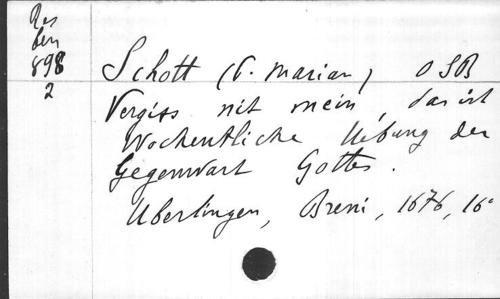 Res
ben
898
2
Schott (P. Marian) OSB
Vergiss nit mein, das ist
Wochentliche Uebung der
Gegenwart Gottes.
Uberlingen, Breni, 1676, 16°